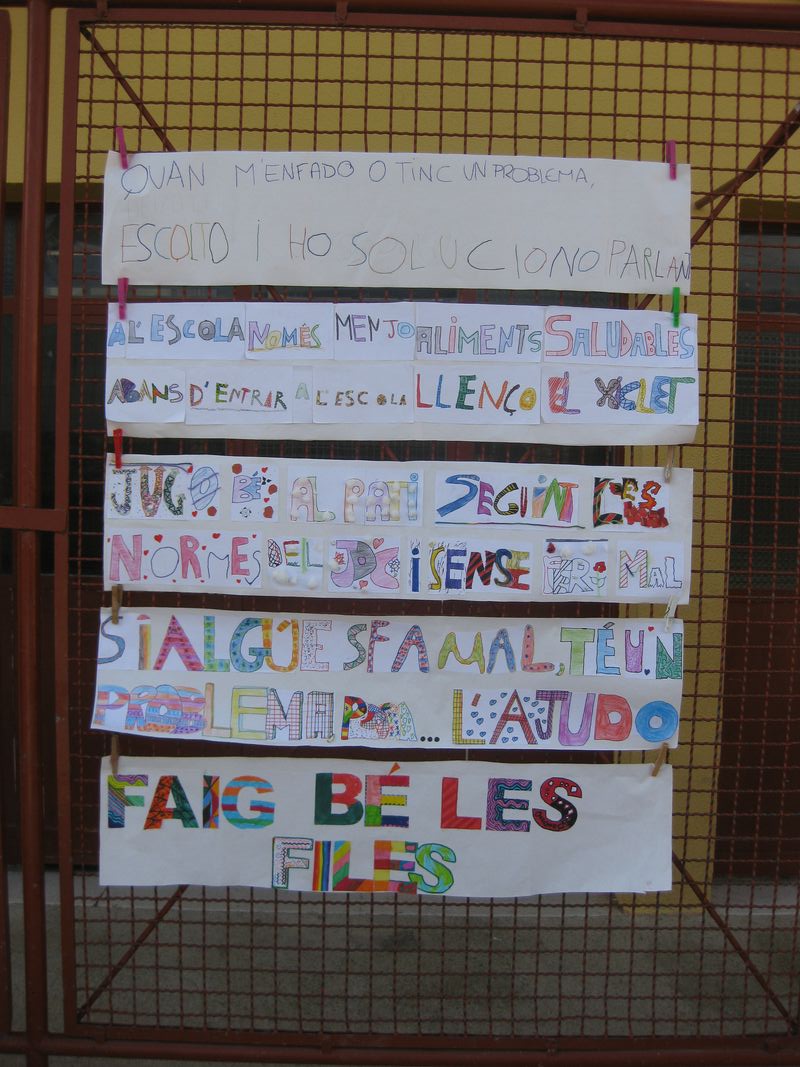 QUAN M'ENFADO O TINC UN PROBLEMA,
ESCOLTO I HO SOLUCIONO PARLANT
A L'ESCOLA NOMÉS MENJO ALIMENTS SALUDABLES
ABANS D'ENTRAR A L'ESCOLA LLENÇO EL XICLET
JUGO BÉ AL PATI SEGUINT LES
NORMES DEL JOC I SENSE FER MAL
SI ALGÚ ES FA MAL, TÉ UN
PROBLEMA, ... L'AJUDO
FAIG BÉ LES
FILES